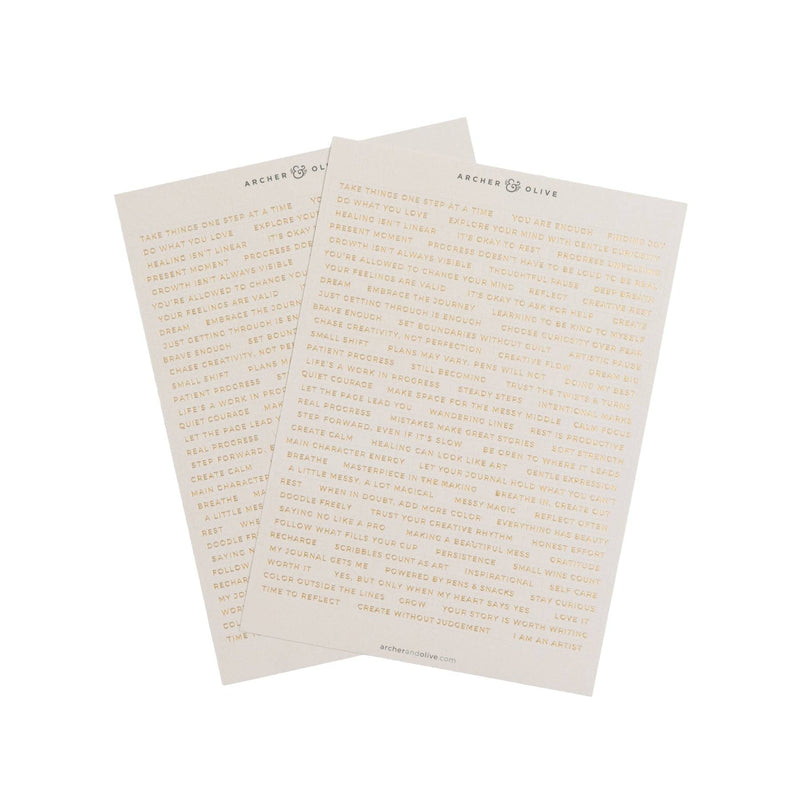 ARCHER & OLIVE
TAKE THINGS ONE STEP AT A TIME YOU ARE ENOUGH FINDING JOY
DO WHAT YOU LOVE EXPLORE YOUR MIND WITH GENTLE CURIOSITY
HEALING ISN'T LINEAR IT'S OKAY TO REST PROGRESS UNFOLDING
PRESENT MOMENT PROGRESS DOESN'T HAVE TO BE LOUD TO BE REAL
GROWTH ISN'T ALWAYS VISIBLE THOUGHTFUL PAUSE DEEP BREATH
YOU'RE ALLOWED TO CHANGE YOUR MIND REFLECT CREATIVE REST
YOUR FEELINGS ARE VALID IT'S OKAY TO ASK FOR HELP CREATE
DREAM EMBRACE THE JOURNEY LEARNING TO BE KIND TO MYSELF
JUST GETTING THROUGH IS ENOUGH CHOOSE CURIOSITY OVER FEAR
BRAVE ENOUGH SET BOUNDARIES WITHOUT GUILT ARTISTIC PAUSE
CHASE CREATIVITY, NOT PERFECTION CREATIVE FLOW DREAM BIG
SMALL SHIFT PLANS MAY VARY, PENS WILL NOT DOING MY BEST
PATIENT PROGRESS STILL BECOMING TRUST THE TWISTS & TURNS
LIFE'S A WORK IN PROGRESS STEADY STEPS INTENTIONAL MARKS
QUIET COURAGE MAKE SPACE FOR THE MESSY MIDDLE CALM FOCUS
LET THE PAGE LEAD YOU WANDERING LINES REST IS PRODUCTIVE
REAL PROGRESS MISTAKES MAKE GREAT STORIES SOFT STRENGTH
STEP FORWARD, EVEN IF IT'S SLOW BE OPEN TO WHERE IT LEADS
CREATE CALM HEALING CAN LOOK LIKE ART GENTLE EXPRESSION
MAIN CHARACTER ENERGY LET YOUR JOURNAL HOLD WHAT YOU CAN'T
BREATHE MASTERPIECE IN THE MAKING BREATHE IN, CREATE OUT
A LITTLE MESSY, A LOT MAGICAL MESSY MAGIC REFLECT OFTEN
REST WHEN IN DOUBT, ADD MORE COLOR EVERYTHING HAS BEAUTY
DOODLE FREELY TRUST YOUR CREATIVE RHYTHM HONEST EFFORT
SAYING NO LIKE A PRO MAKING A BEAUTIFUL MESS GRATITUDE
FOLLOW WHAT FILLS YOUR CUP PERSISTENCE SMALL WINS COUNT
RECHARGE SCRIBBLES COUNT AS ART INSPIRATIONAL SELF CARE
MY JOURNAL GETS ME POWERED BY PENS & SNACKS STAY CURIOUS
WORTH IT YES, BUT ONLY WHEN MY HEART SAYS YES LOVE IT
COLOR OUTSIDE THE LINES GROW YOUR STORY IS WORTH WRITING
TIME TO REFLECT CREATE WITHOUT JUDGEMENT I AM AN ARTIST
archerandolive.com
ARCHER & OL
TAKE THINGS ONE STEP AT A TIME
DO WHAT YOU LOVE EXPLORE YOUR
HEALING ISN'T LINEAR IT'S OKAY
PRESENT MOMENT PROGRESS DOES
GROWTH ISN'T ALWAYS VISIBLE
YOU'RE ALLOWED TO CHANGE YOU
YOUR FEELINGS ARE VALID
DREAM EMBRACE THE JOURN
JUST GETTING THROUGH IS EN
BRAVE ENOUGH SET BOUN
CHASE CREATIVITY, NOT PER
SMALL SHIFT PLANS M
PATIENT PROGRESS
LIFE'S A WORK IN PRO
QUIET COURAGE
LET THE PAGE LEAD Y
REAL PROGRESS
STEP FORWARD, E
CREATE CALM
MAIN CHARACTER
BREATHE
A LITTLE MESS
REST
DOODLE FREE
SAYING NO
FOLLOW
RECHARG
MY JO
WOR
COL
TIME